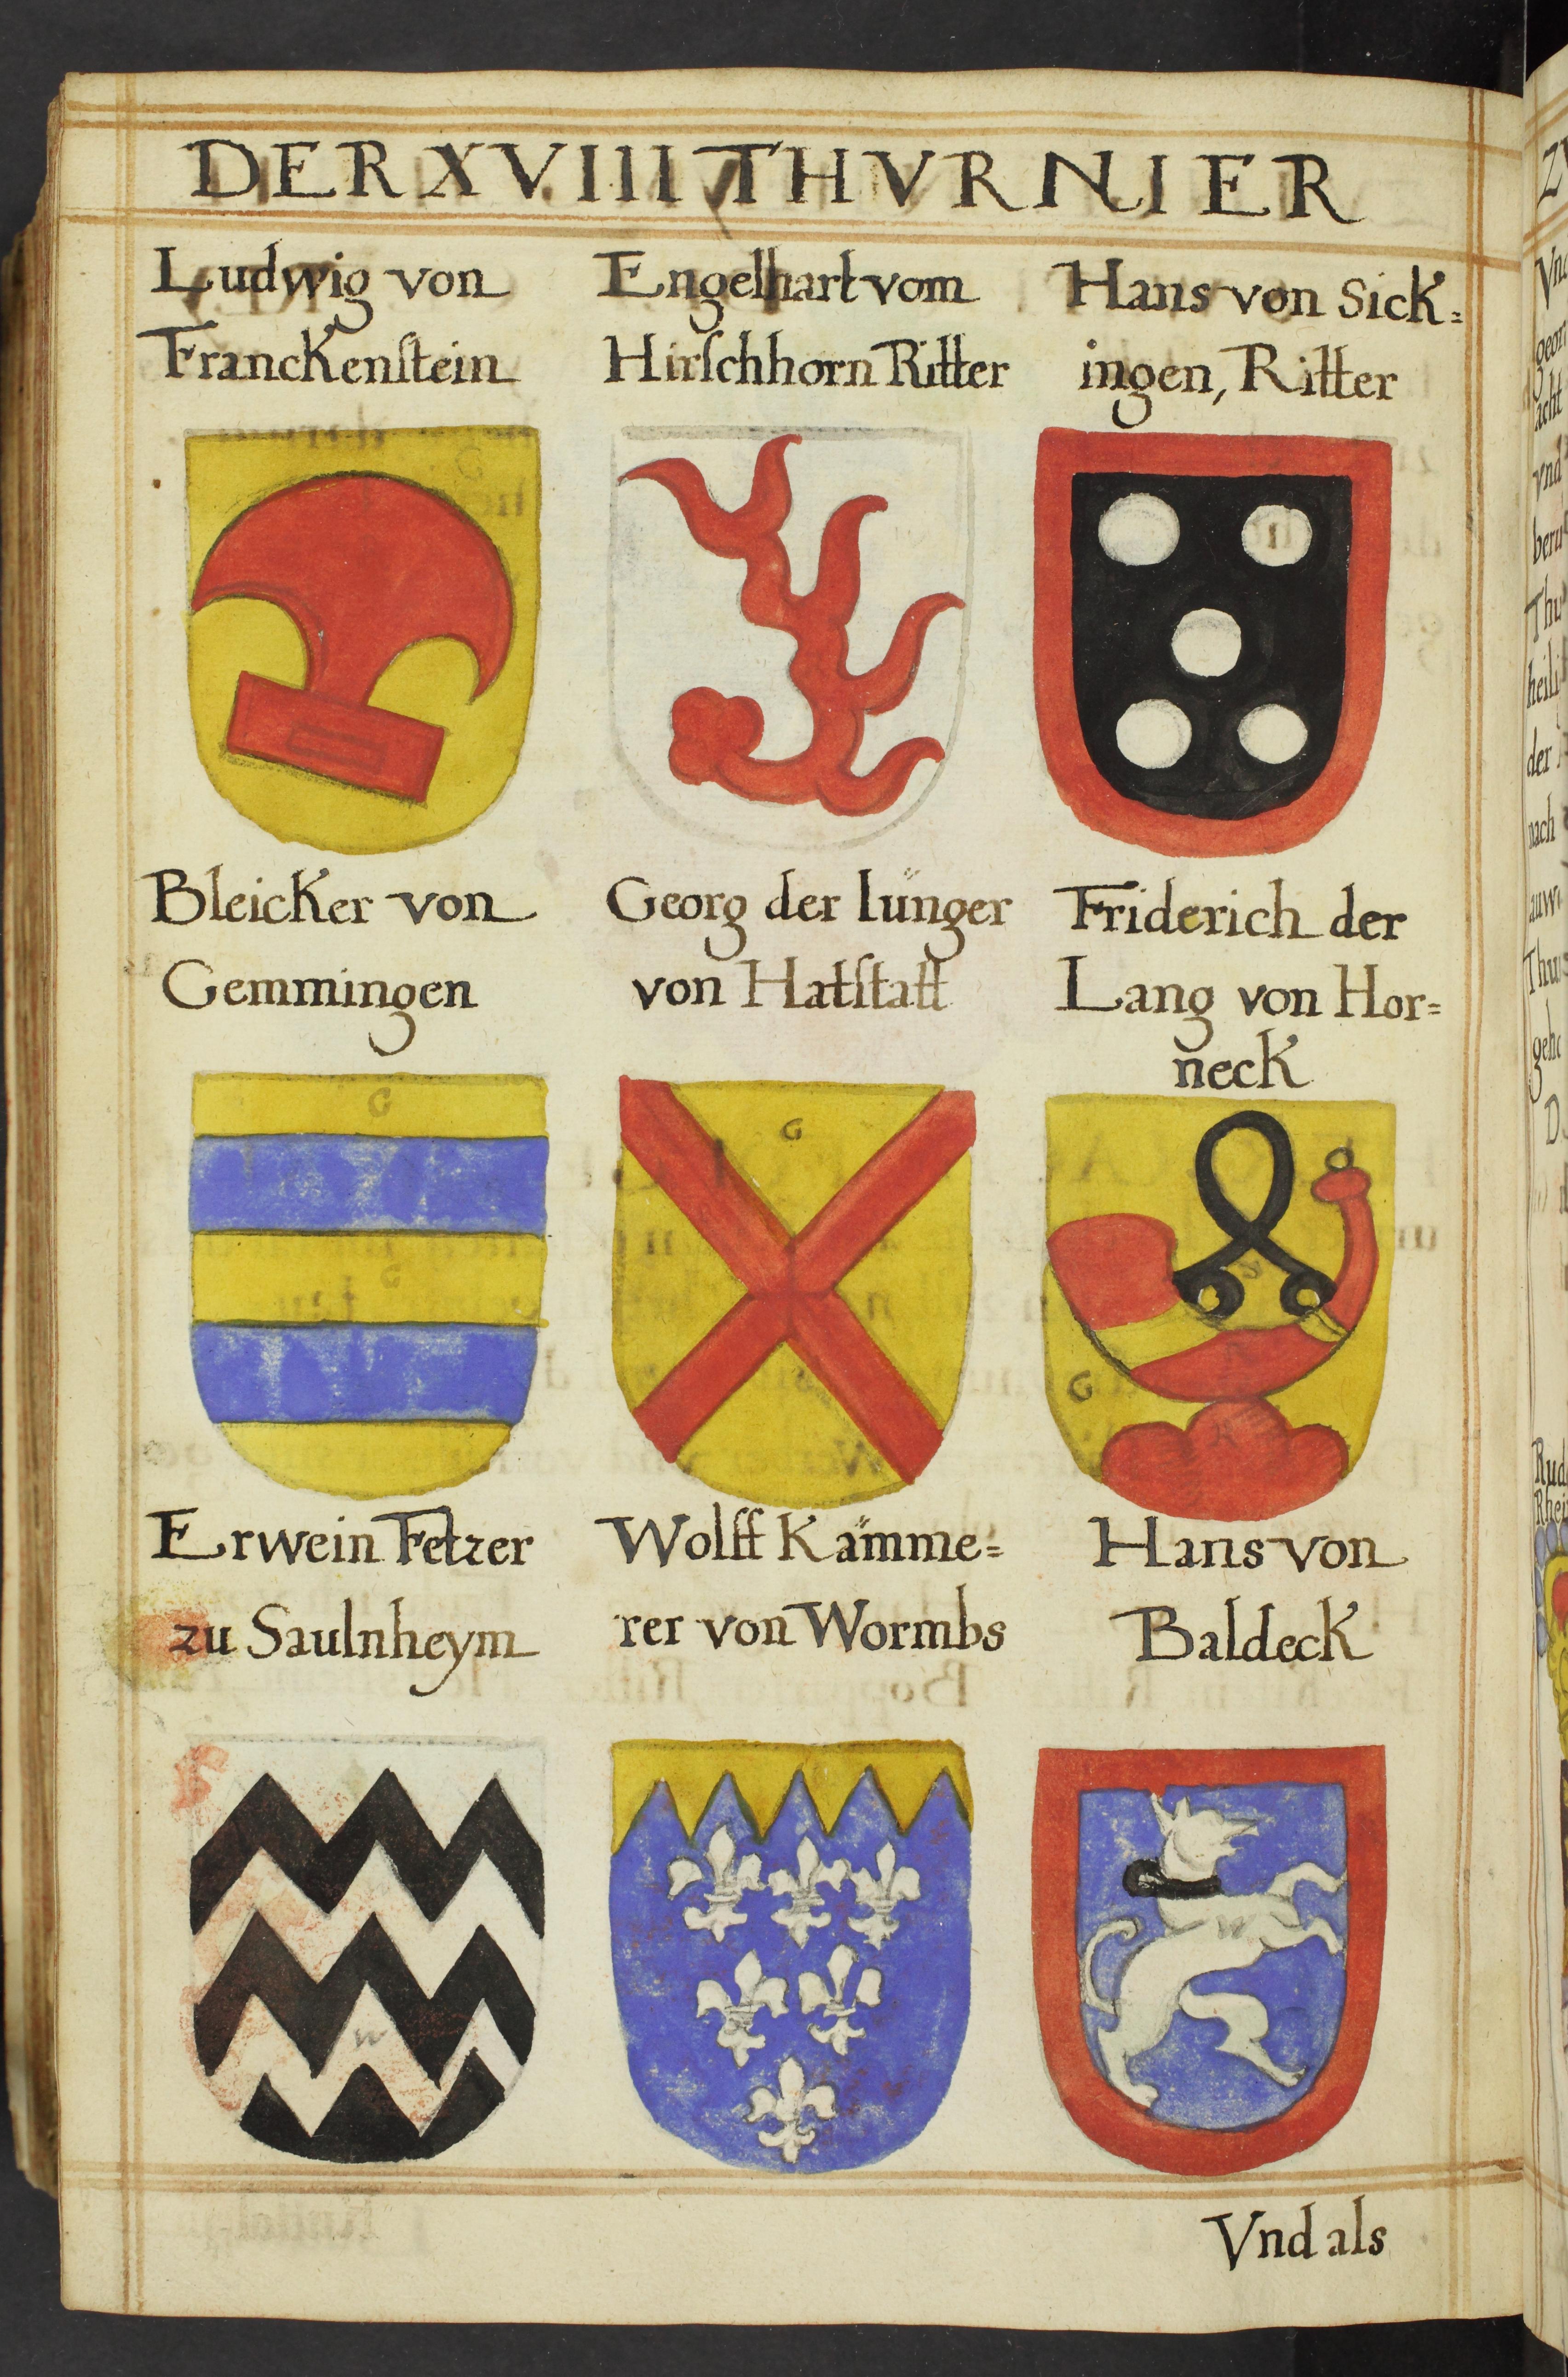 DER XVIII THVRNIER
Ludwig von
Franckenſtein
Engelhart vom
Hirſchhorn Ritter
Hans von Sick=
ingen, Ritter
Bleicker von
Gemmingen
Georg der Iünger
von Hatſtatt
Friderich der
Lang von Hor=
neck
G
G
G
G
S
R
R
Erwein Fetzer
zu Saulnheym
Wolff Kämme=
rer von Wormbs
Hans von
Baldeck
W
Vnd als